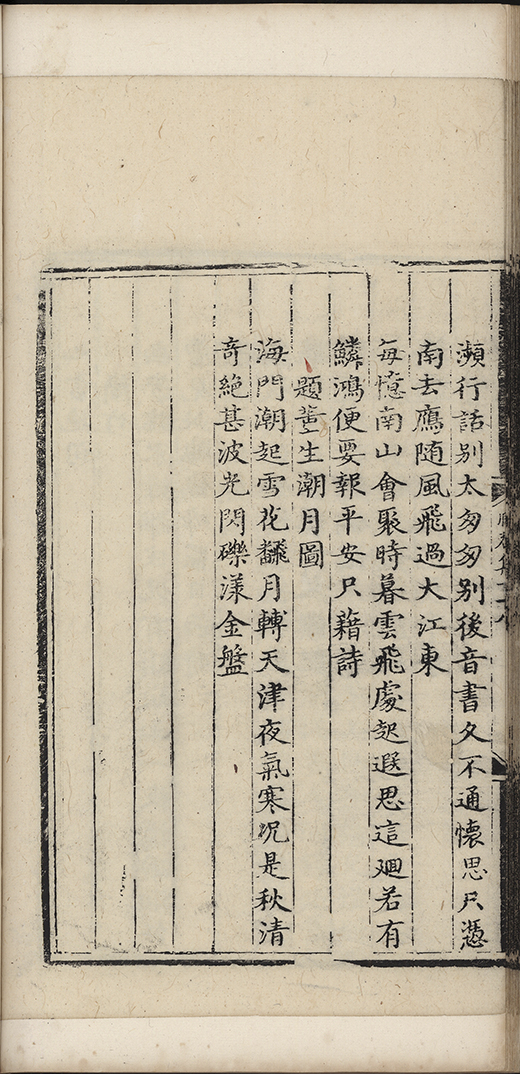 瀕行話別太匆匆別後音書久不通懷思只憑
南去鴈随風飛過大江東
每憶南山會聚時暮雲飛處起遐思這廻若有
鱗鴻便要報平安只藉詩
題董生潮月圖
海門潮起雪花飜月轉天津夜氣寒况是秋清
奇絶甚波光閃礫漾金盤